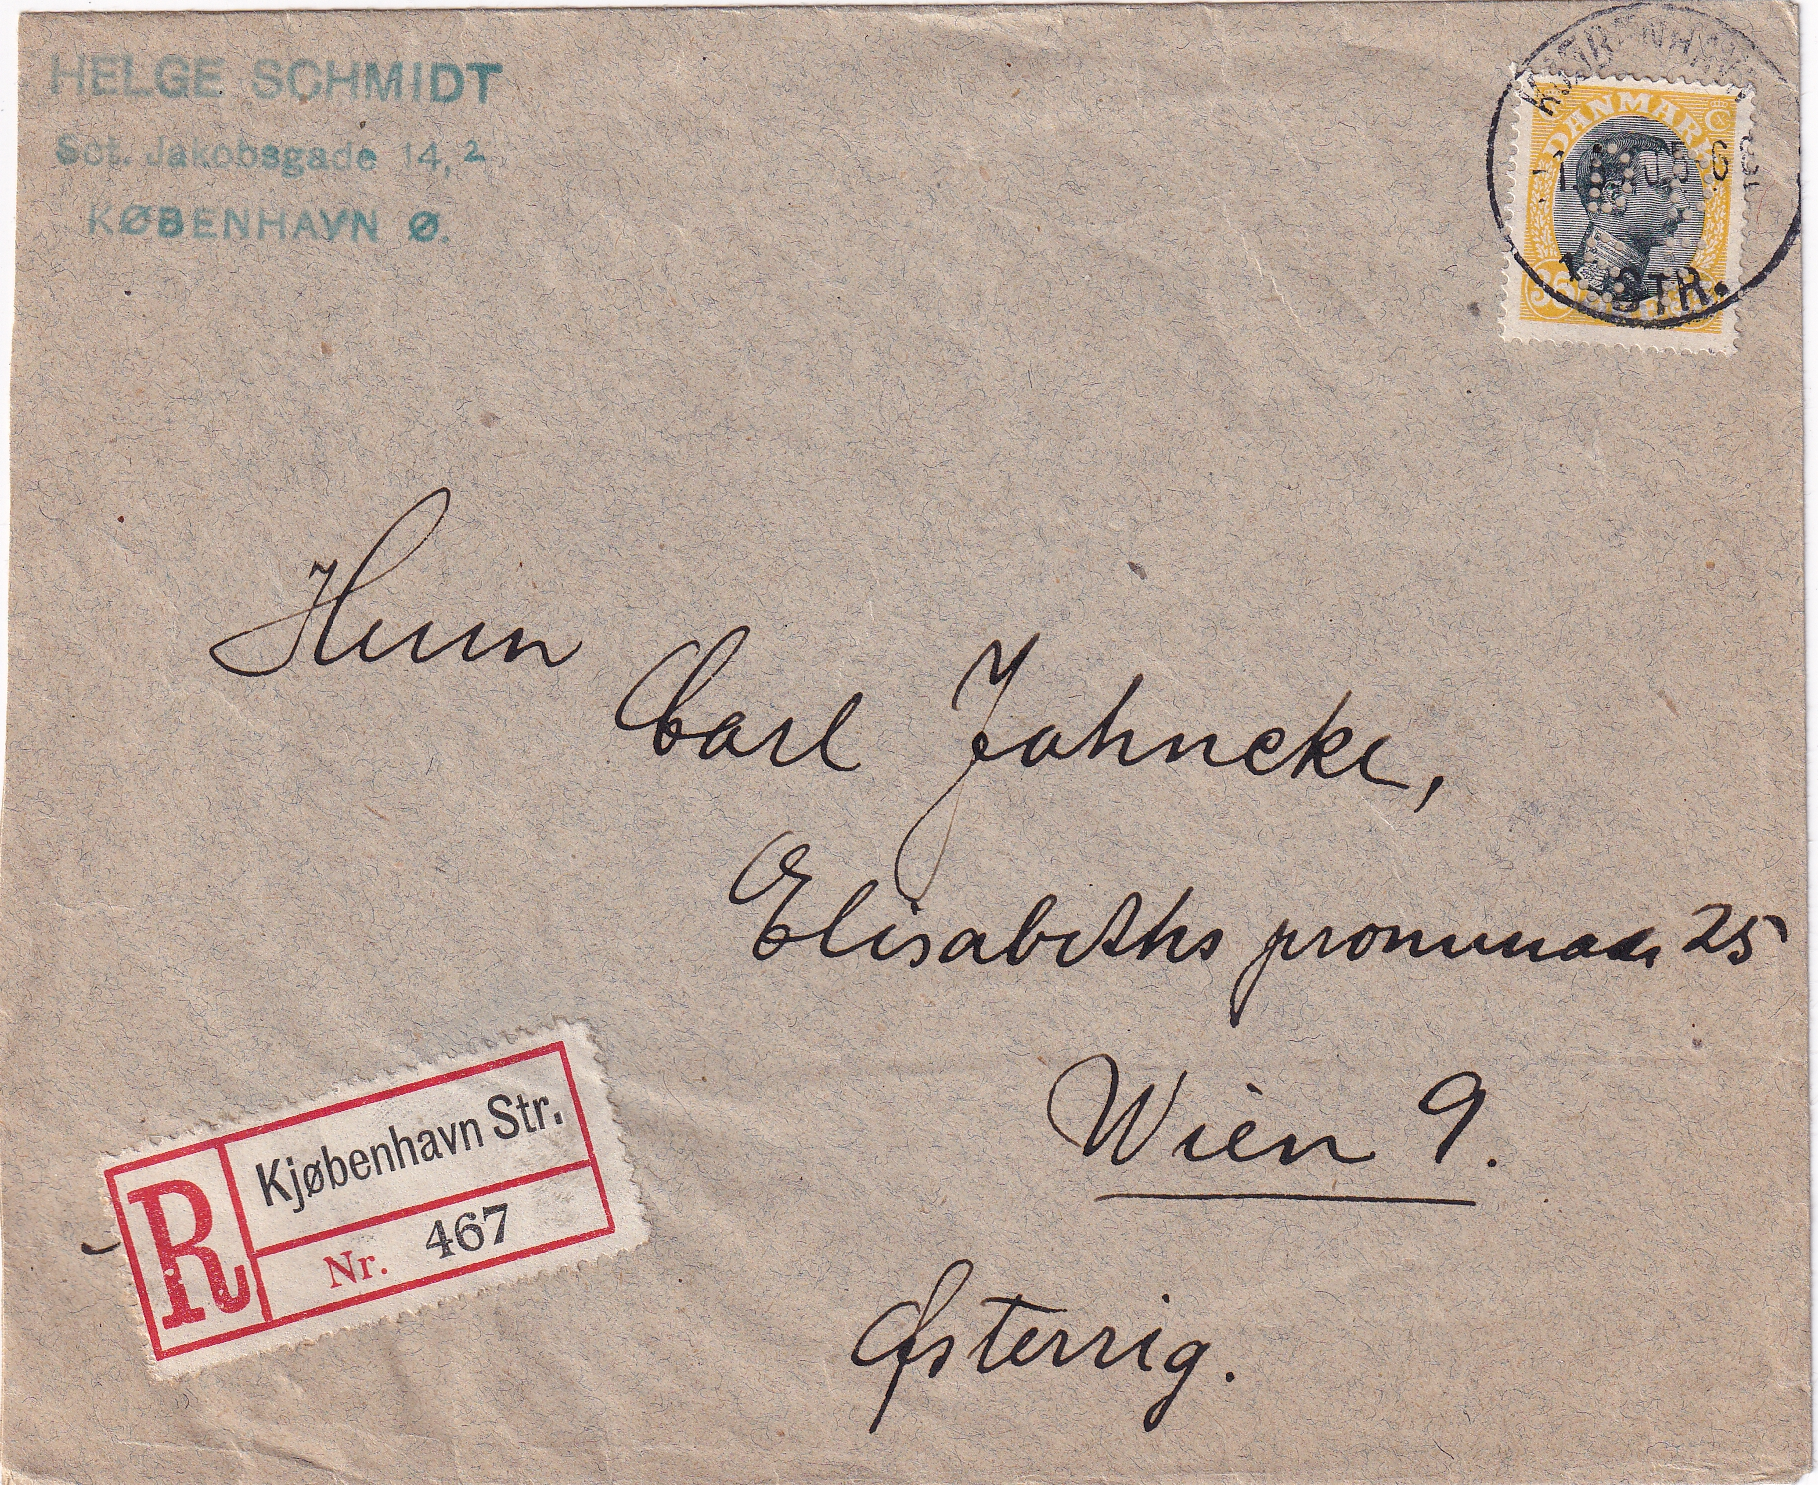 HELGE SCHMIDT
Sct. Jakobsgade 14,2
KØBENHAVN Ø.
KJØBENHAVN
DANMARK
35
STR.
Herrn
Carl Jahncke,
Elisabeths promenade 25
Wien 9.
Østerrig.
R
Kjøbenhavn Str.
Nr. 467